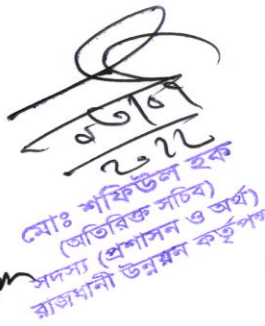 মোঃ শফিউল হক
(অতিরিক্ত সচিব)
সদস্য (প্রশাসন ও অর্থ)
রাজধানী উন্নয়ন কর্তৃপক্ষ